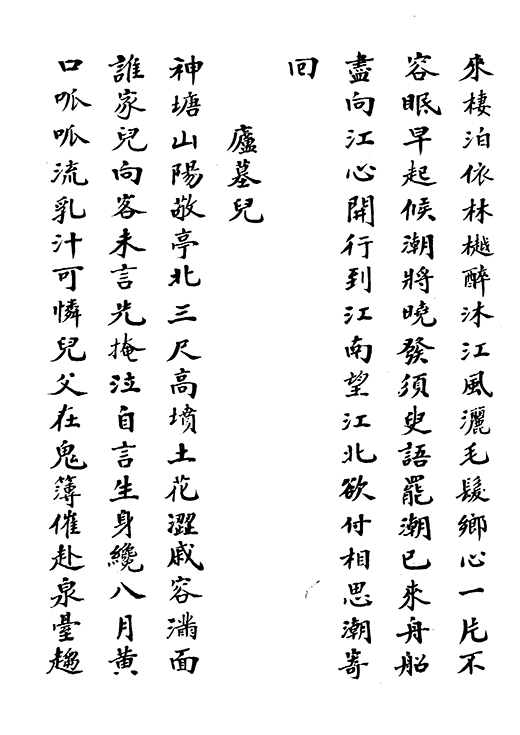 來棲泊依林樾醉沐江風灑毛髮鄉心一片不
容眠早起候潮將曉發須臾語罷潮已來舟船
盡向江心開行到江南望江北欲付相思潮寄
回
廬墓兒
神塘山陽敬亭北三尺高墳土花澀戚容滿面
誰家兒向客未言先掩泣自言生身纔八月黃
口呱呱流乳汁可憐兒父在鬼簿催赴泉臺趨